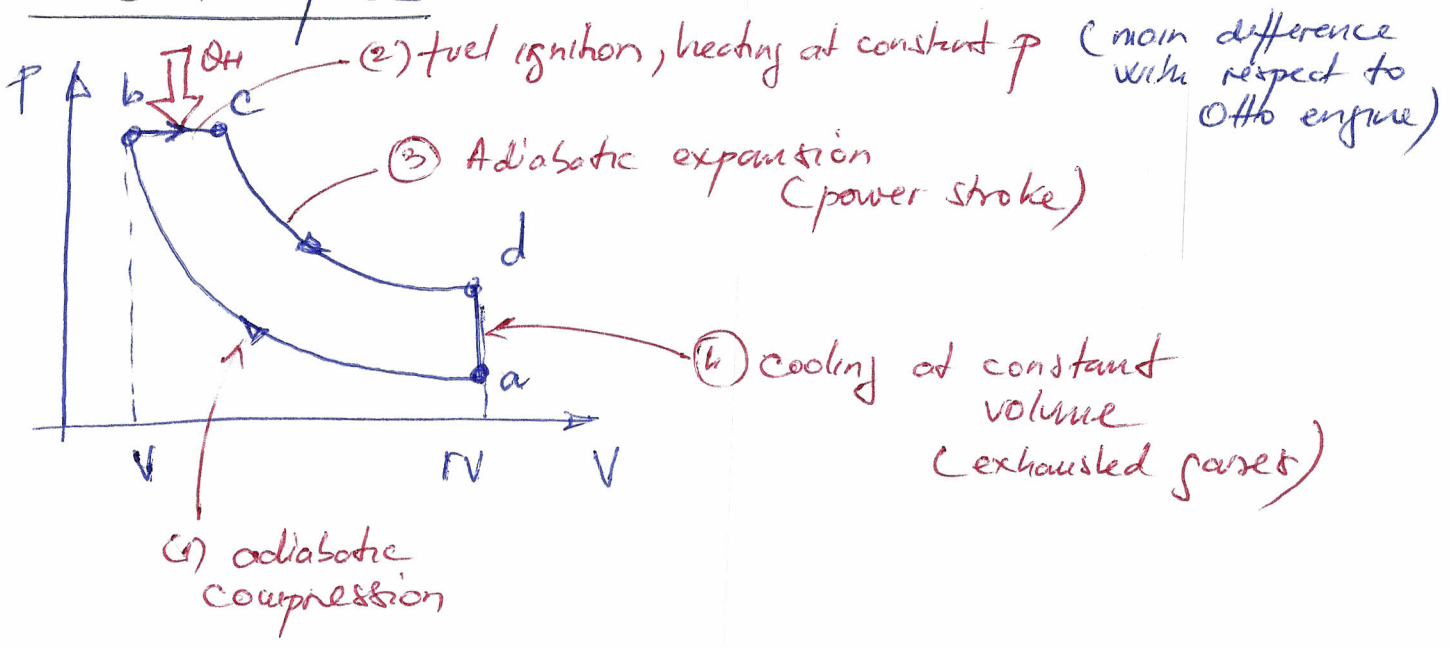 P
b
Q_H
c
(2) fuel ignition, heating at constant p
(main difference
with respect to
Otto engine)
(3) Adiabatic expansion
(power stroke)
d
(4) cooling at constant
volume
(exhausted gases)
a
V
rV
V
(1) adiabatic
compression